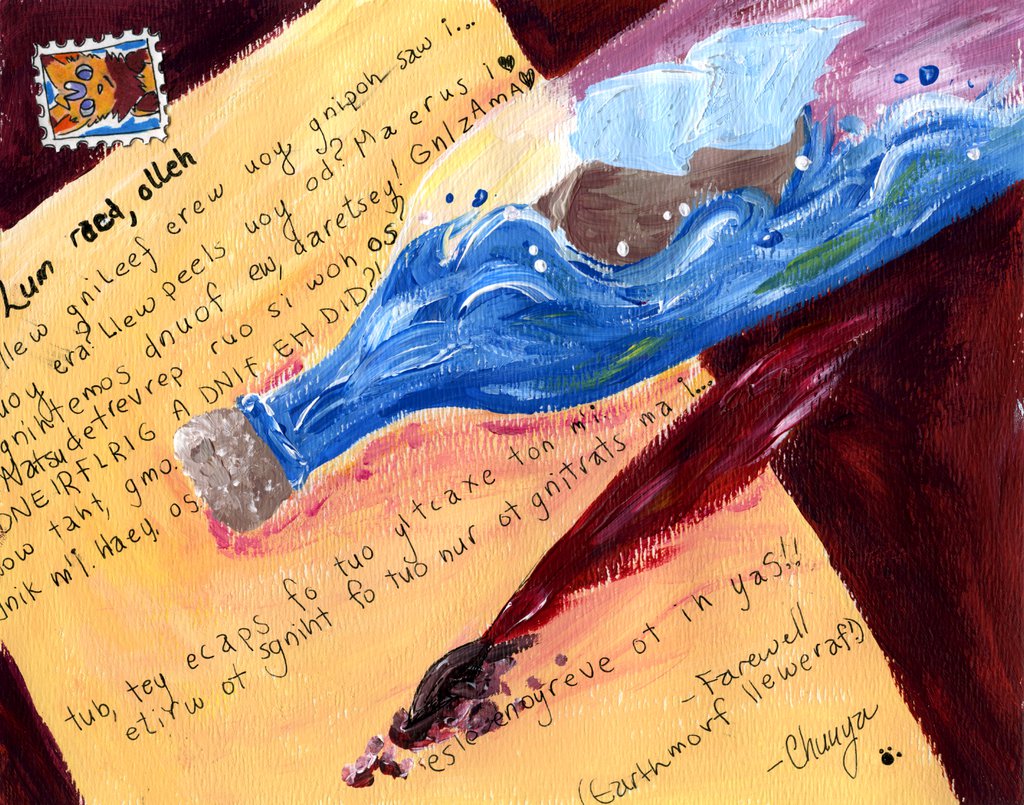 Lum raed, olleh
llew gnileef erew uoy gnipoh saw i...
uoy era? Llew peels uoy od? Ma erus i♥
gnihtemos dnuof ew, daretsey! GnIzAmA♥
Natsudetrevrep ruo si woh os
DNEIRFLRIG A DNIF EH DID?!
wow taht, gmo.
gnik m'i. Haey, os
tub, tey ecaps fo tuo yltcaxe ton m'i.
etirw ot sgniht fo tuo nur ot gnitrats ma i...
esle enoyreve ot ih yaS!!
- Farewell
(Earthmorf lleweraf!)
- Chuuya